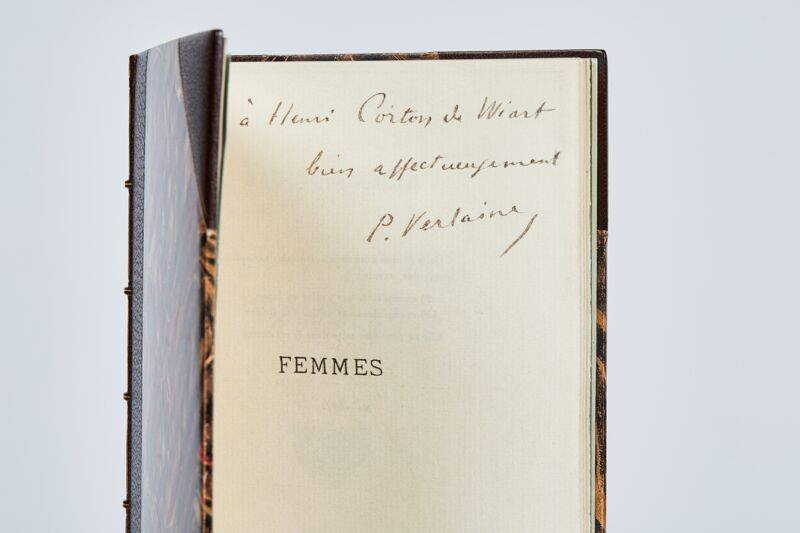 à Henri Carton de Wiart
bien affectueusement
P. Verlaine
FEMMES